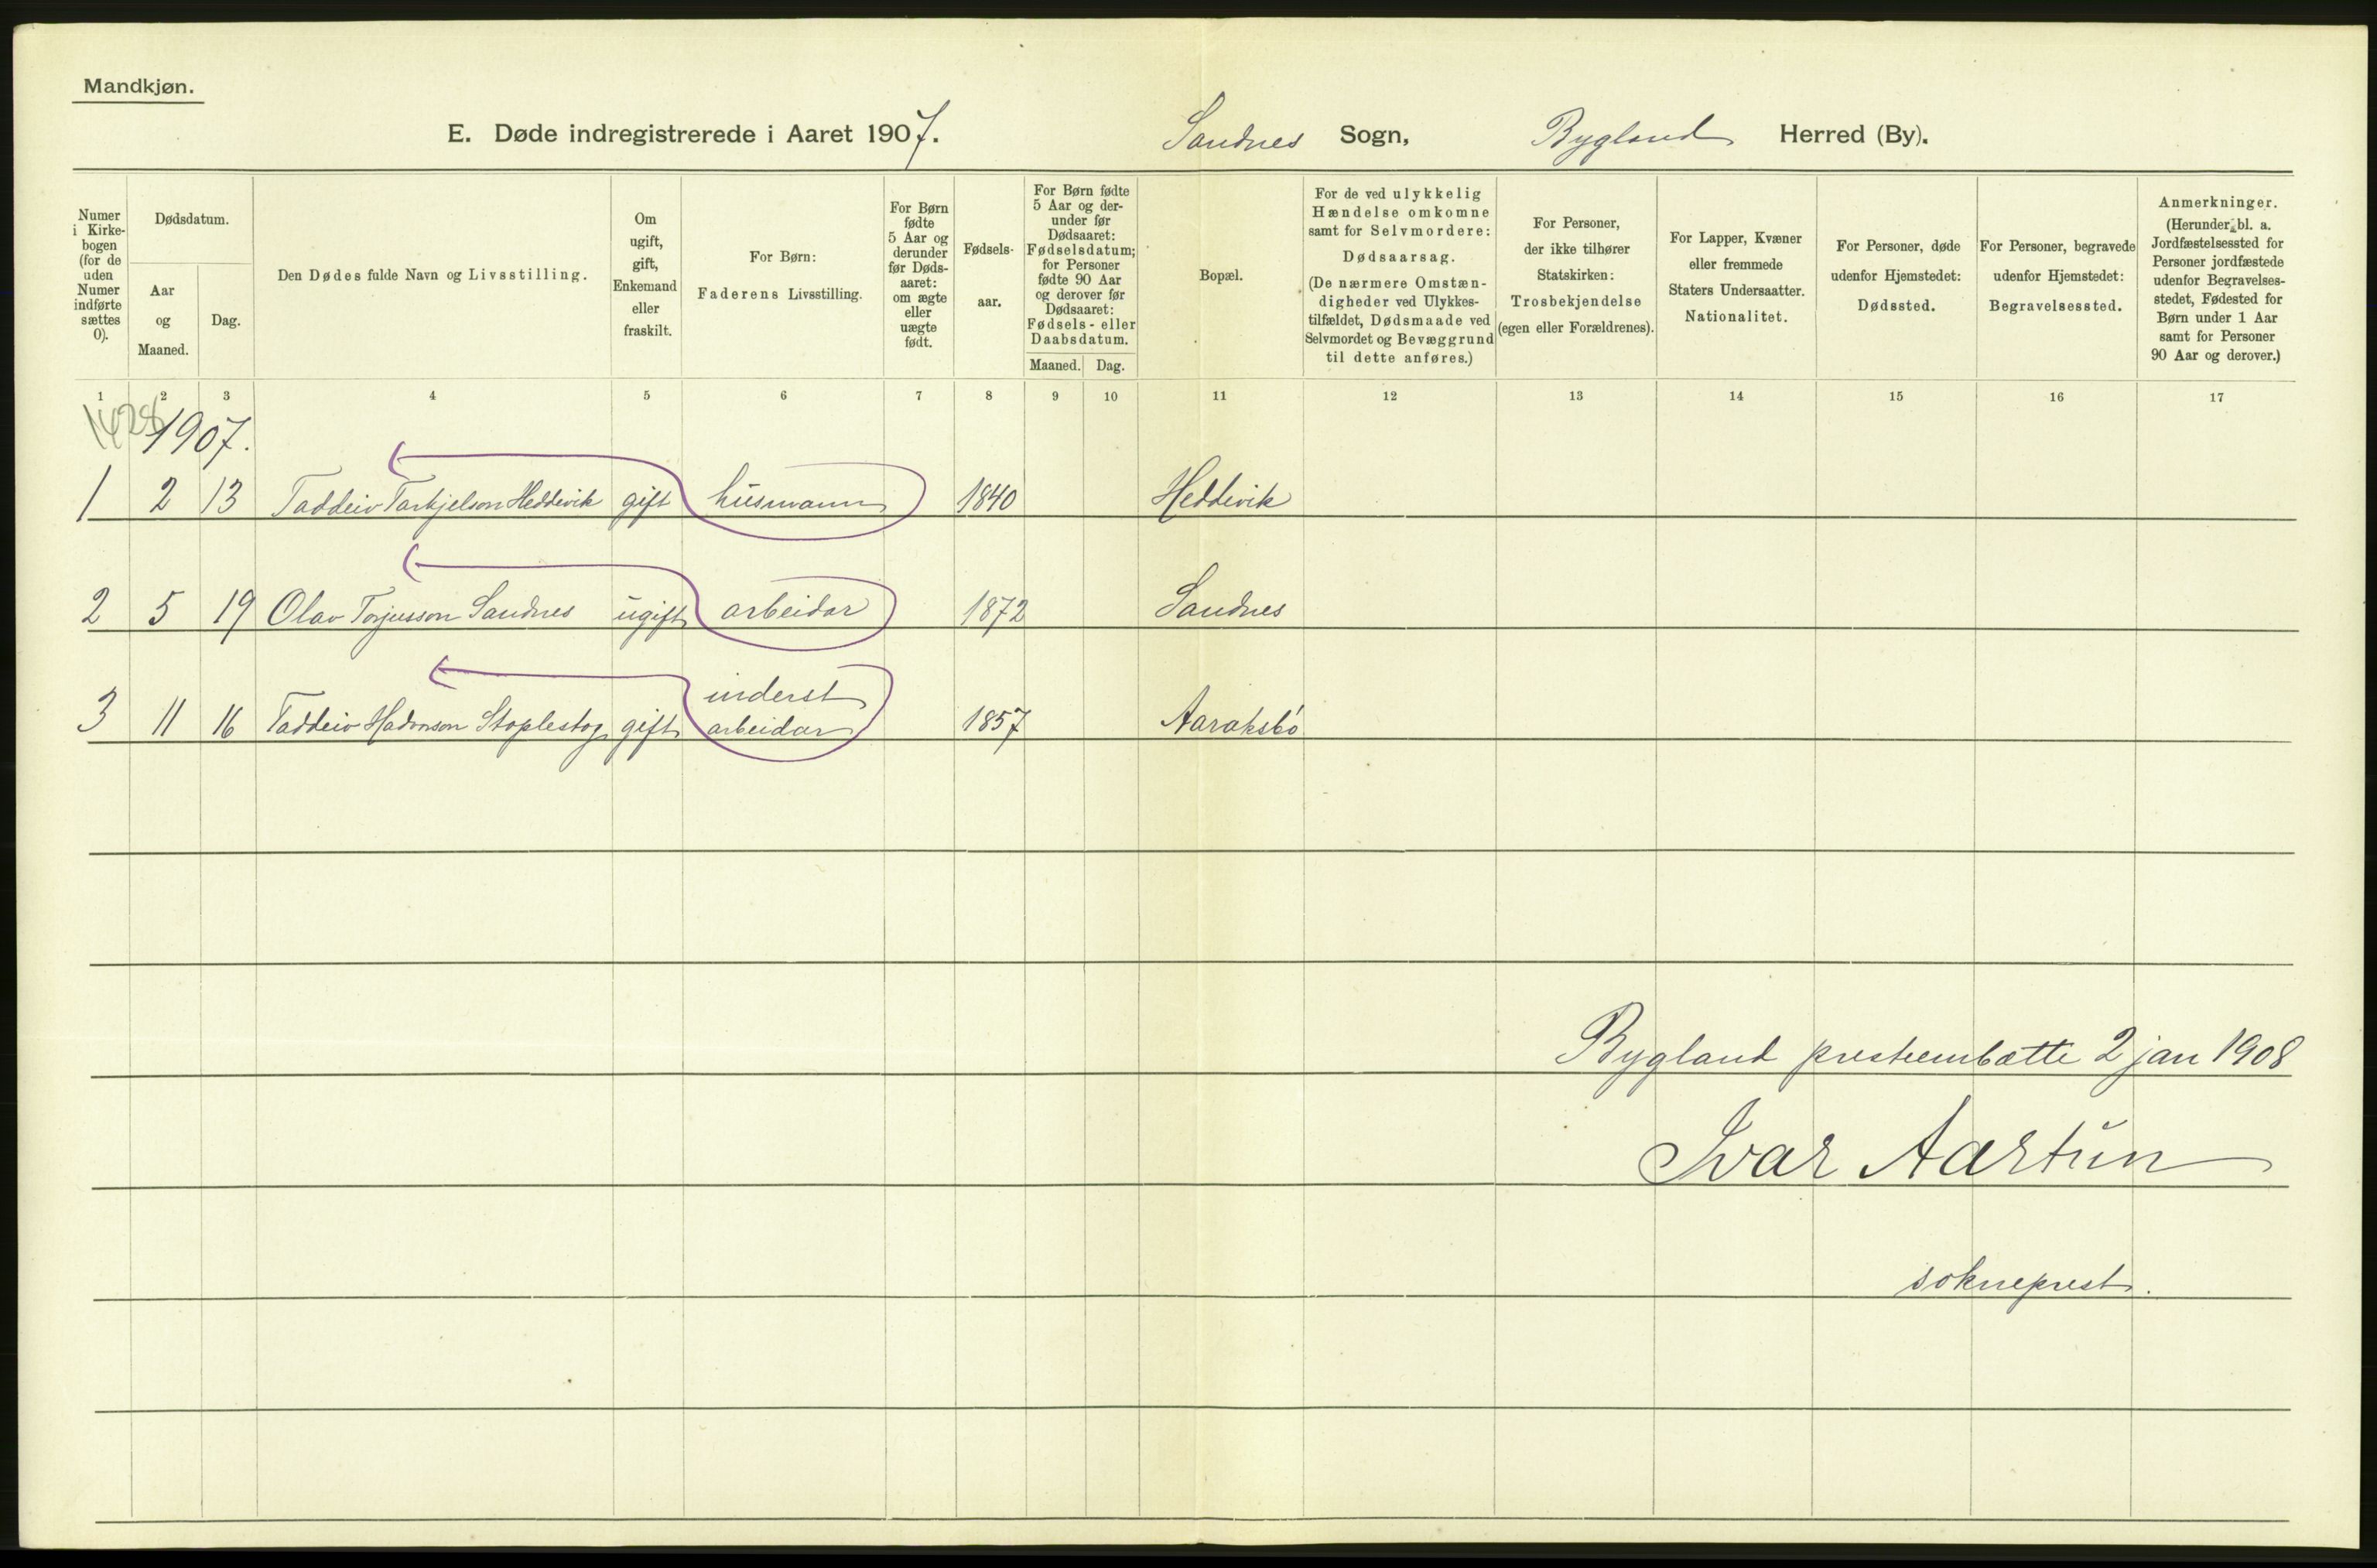 Mandkjøn.
E. Døde indregistrerede i Aaret 1907. Sandnes Sogn, Bygland Herred (By).
Numer i Kirke-
bogen
(for de
uden
Numer
indførte
sættes
0).
Dødsdatum.
Aar
og
Maaned.
Dag.
Den Dødes fulde Navn og Livsstilling.
Om
ugift,
gift,
Enkemand
eller
fraskilt.
For Børn:
Faderens Livsstilling.
For Børn
fødte
5 Aar og
derunder
før Døds-
aaret:
om ægte
eller
uægte
født.
Fødsels-
aar.
For Børn fødte
5 Aar og der-
under før
Dødsaaret:
Fødselsdatum;
for Personer
fødte 90 Aar
og derover før
Dødsaaret:
Fødsels- eller
Daabsdatum.
Maaned. Dag.
Bopæl.
For de ved ulykkelig
Hændelse omkomne
samt for Selvmordere:
Dødsaarsag.
(De nærmere Omstæn-
digheder ved Ulykkes-
tilfældet, Dødsmaade ved
Selvmordet og Bevæggrund
til dette anføres.)
For Personer,
der ikke tilhører
Statskirken:
Trosbekjendelse
(egen eller Forældrenes).
For Lapper, Kvæner
eller fremmede
Staters Undersaatter.
Nationalitet.
For Personer, døde
udenfor Hjemstedet:
Dødssted.
For Personer, begravede
udenfor Hjemstedet:
Begravelsessted.
Anmerkninger.
(Herunder bl. a.
Jordfæstelsessted for
Personer jordfæstede
udenfor Begravelses-
stedet, Fødested for
Børn under 1 Aar
samt for Personer
90 Aar og derover.)
1 2 3 4 5 6 7 8 9 10 11 12 13 14 15 16 17
1428
1907.
1 2 13 Taddeiv Tarkjelson Heddevik gift husmann 1840 Heddevik
2 5 19 Olav Torjusson Sandnes ugift arbeidar 1872 Sandnes
inderst
3 11 16 Taddeiv Hadvorson Stoplestog gift arbeidar 1857 Aaraksbó
Bygland prestembætte 2 jan 1908
Ivar Aartun
sokneprest.